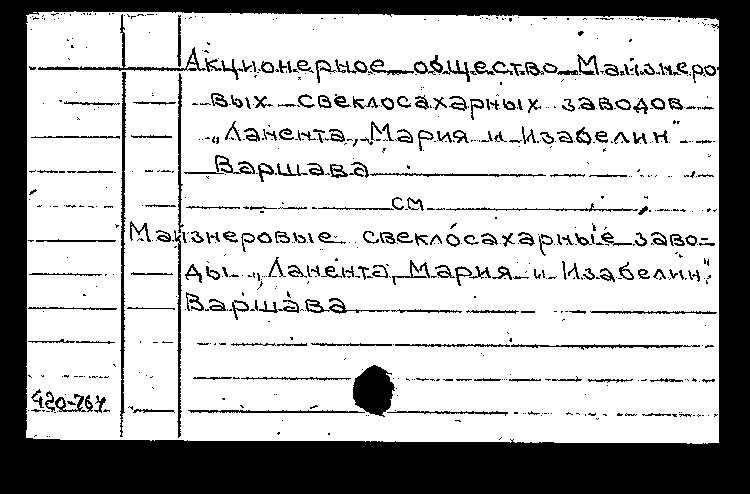 Акционерное общество Майзнеро
вых свеклосахарных заводов
„Ланента, Мария и Изабелин"
Варшава
см
Майзнеровые свеклосахарные заво-
ды „Ланента, Мария и Изабелин".
Варшава
420-764